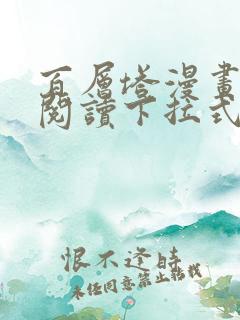 百層塔漫畫
閱讀下拉式
恨不逢時
未經同意禁止轉載